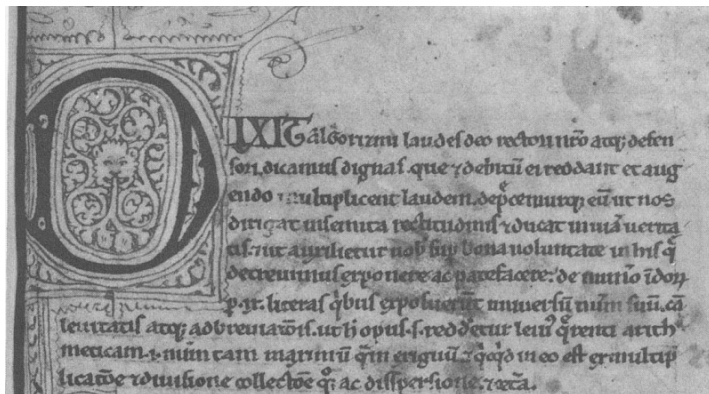 DIXIT algorizmi laudes deo rectori nr̃o atq; defen
sori dicamus dignas. que ⁊ debitũ ei reddant et aug
endo multiplicent laudem. dep̃cemurq; eũ ut nos
dirigat in semita rectitudinis ⁊ ducat in uiã uerita
tis. ⁊ ut auxilietur nob sup bona uoluntate in his q̃
decreuimus exponere ac patefacere: de numo ĩdoꝝ
p .ix. literas q̃bus exposuerũt uniuersũ nũm suũ. cã
leuitatis atq; adbreuiatõis. ut h̃ opus .s. redd̃etur leui᷒ q̃renti arith
meticam .i. nũm tam maximũ q̃m exiguũ. ⁊ q̃cq̃d in eo est ex multip
licatõe ⁊ diuisione collectõe q̃; ac disspersione. ⁊ cẽta.